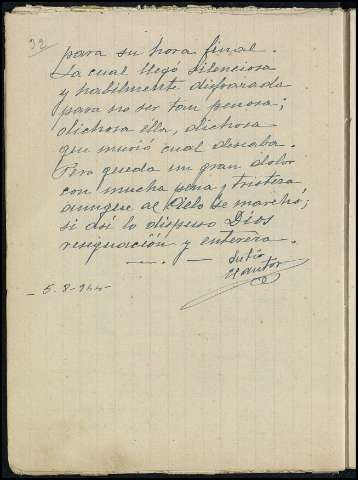 33
para su hora final.
La cual llegó silenciosa
y habilmente disfrazada
para no ser tan penosa;
dichosa ella, dichosa
que murió cual deseaba.
Pero queda un gran dolor
con mucha pena y tristeza
aunque al Cielo se marchó;
si así lo dispuso Dios
resignación y entereza.
5-8-944-